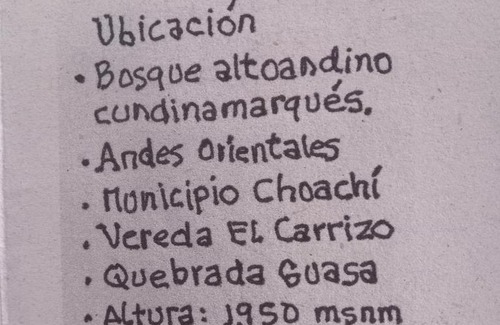 Ubicación
• Bosque altoandino
cundinamarqués.
• Andes Orientales
• Municipio Choachí
• Vereda EL Carrizo
• Quebrada Guasa
• Altura: 1,950 msnm